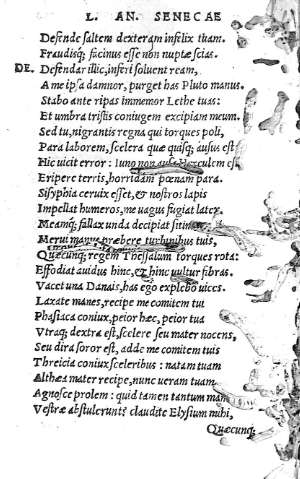 L. AN. SENECAE
Defende saltem dexteram infelix tuam.
Fraudisq; facinus esse non nuptæ scias.
DE. Defendar illic, inferi soluent ream,
A me ipsa damnor, purget has Pluto manus.
Stabo ante ripas immemor Lethe tuas:
Et umbra tristis coniugem excipiam meum.
Sed tu, nigrantis regna qui torques poli,
Para laborem, scelera quæ quisq; ausus est
Hic uicit error: Iuno non ausa Herculem est
Eripere terris, horridam pœnam para.
Sisyphia ceruix esset, & nostros lapis
Impellat humeros, me uagus fugiat latex,
Meamq; fallax unda decipiat sitim
Merui manus præbere turbinibus tuis,
Quæcunq; regem Thessalum torques rota:
Effodiat auidus hinc, & hinc uultur fibras.
Vacet una Danais, has ego explebo uices.
Laxate manes, recipe me comitem tui
Phasiaca coniux, peior hæc, peior tua
Vtraq; dextra est, scelere seu mater nocens,
Seu dira soror est, adde me comitem tuis
Threicia coniux sceleribus: natam tuam
Althæa mater recipe, nunc ueram tuam
Agnosce prolem: quid tamen tantum man
Vestræ abstulerunt? claudite Elysium mihi,
Quæcunq;